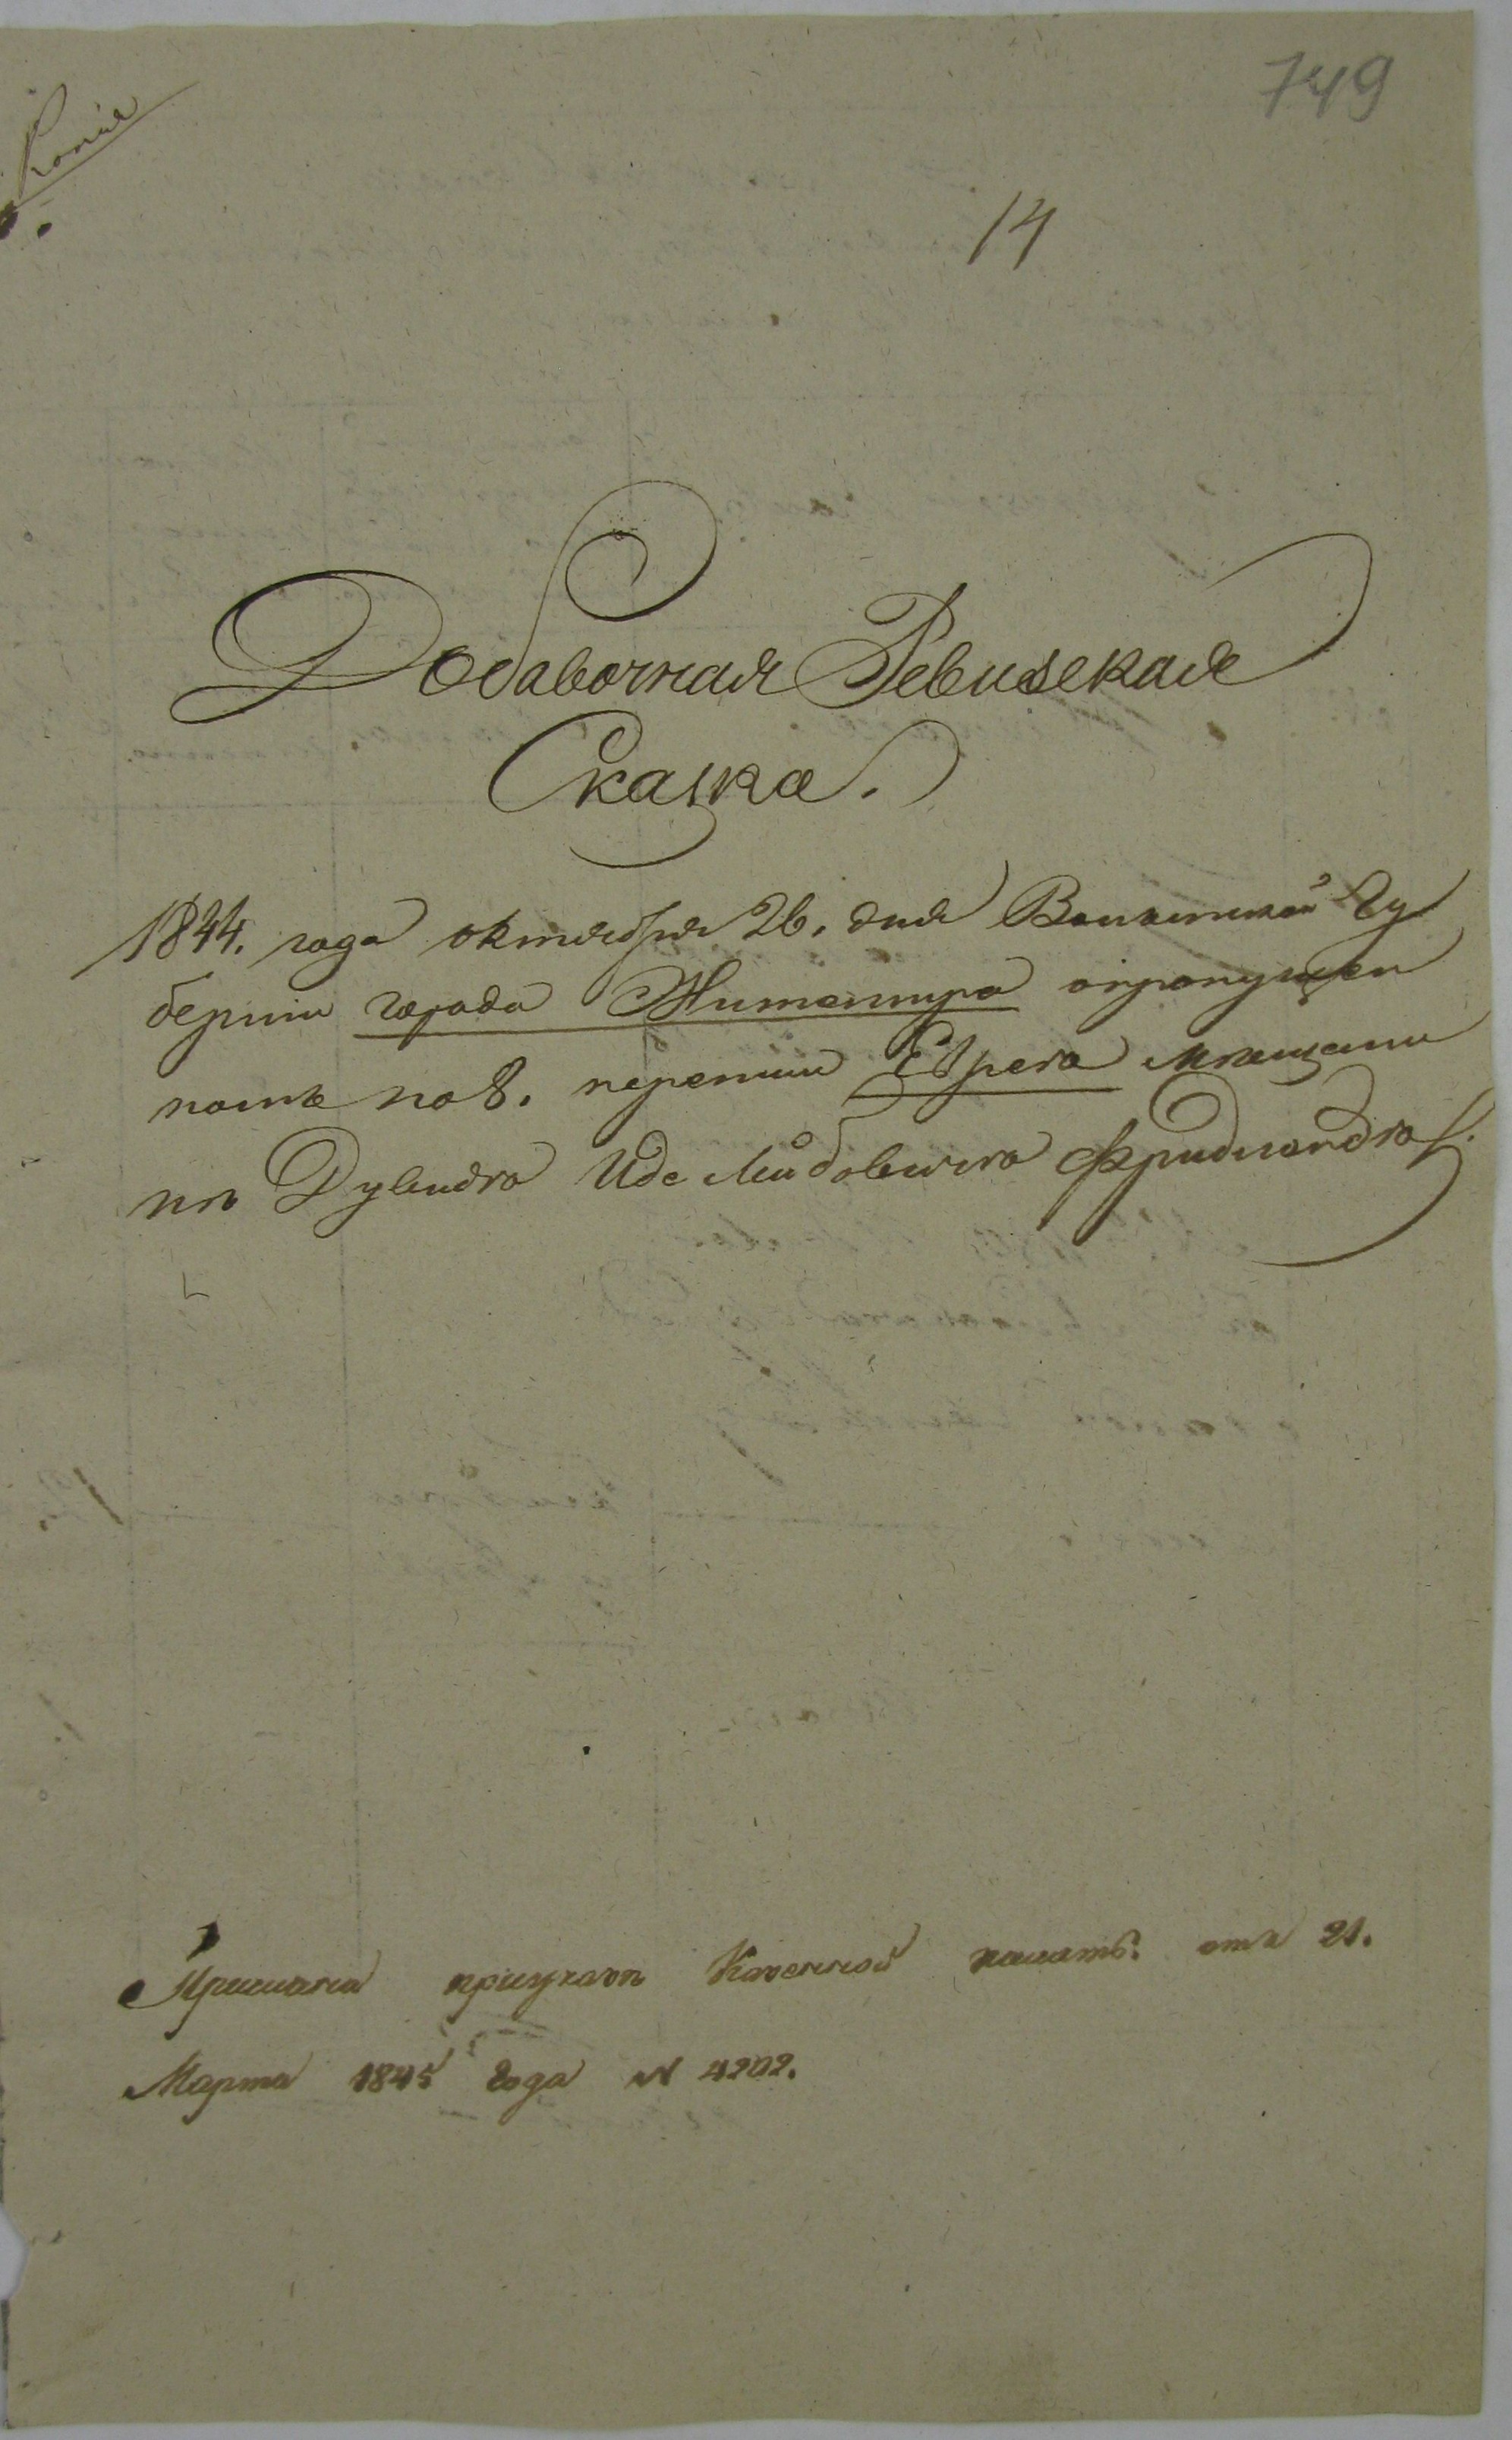 749
Копія
14
Добавочная Ревизская
Сказка.
1844. года октября 26. дня Волынской Гу
берніи города Житомира о пропущен
номъ по 8. переписи Еврея мѣщани
нѣ Дувидѣ Иде Лейбовича Фридландѣ
При указѣ Казенной палаты отъ 21.
Марта 1845 года N 4202.